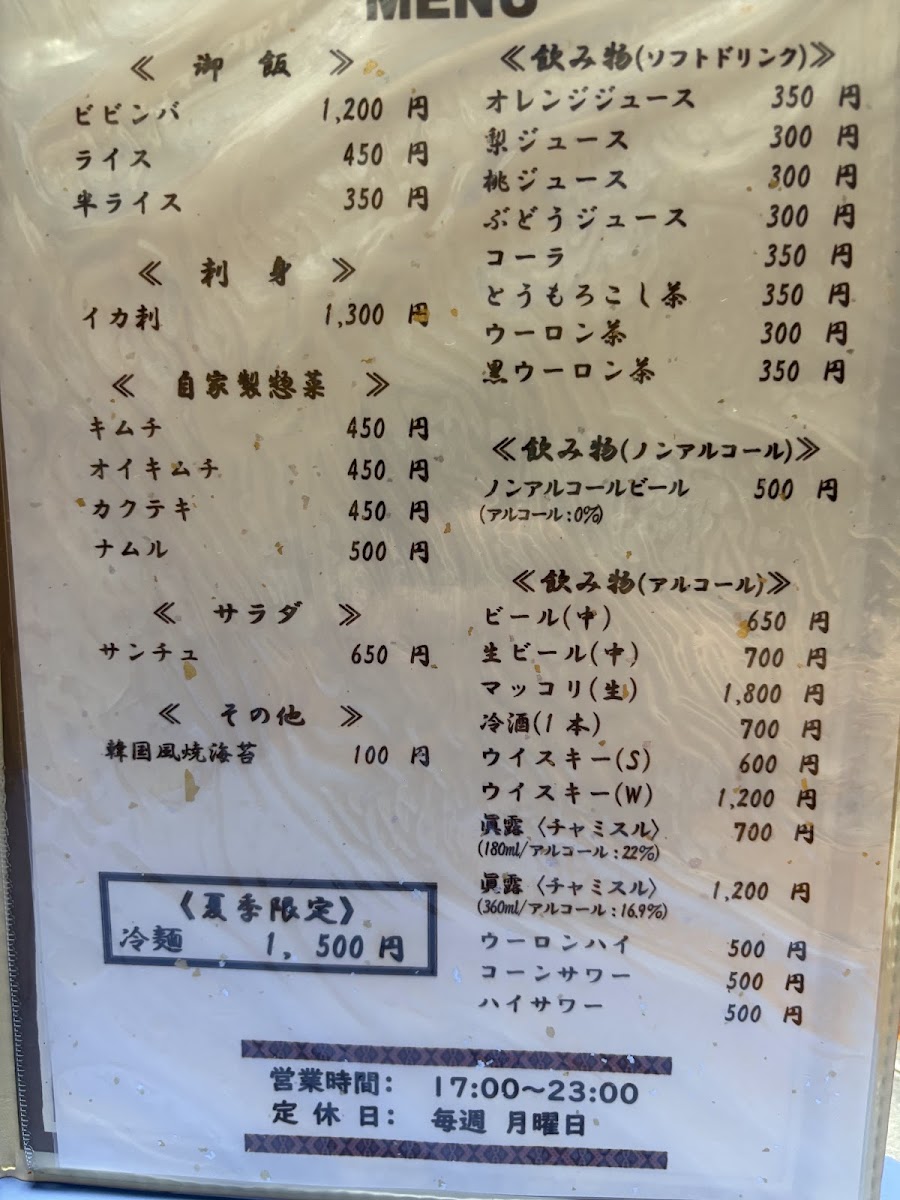 MENU
≪ 御 飯 ≫
ビビンバ 1,200 円
ライス 450 円
半ライス 350 円
≪ 刺 身 ≫
イカ刺 1,300 円
≪ 自家製惣菜 ≫
キムチ 450 円
オイキムチ 450 円
カクテキ 450 円
ナムル 500 円
≪ サラダ ≫
サンチュ 650 円
≪ その他 ≫
韓国風焼海苔 100 円
《夏季限定》
冷麺 1,500円
≪飲み物(ソフトドリンク)≫
オレンジジュース 350 円
梨ジュース 300 円
桃ジュース 300 円
ぶどうジュース 300 円
コーラ 350 円
とうもろこし茶 350 円
ウーロン茶 300 円
黒ウーロン茶 350 円
≪飲み物(ノンアルコール)≫
ノンアルコールビール 500 円
(アルコール:0%)
≪飲み物(アルコール)≫
ビール(中) 650 円
生ビール(中) 700 円
マッコリ(生) 1,800 円
冷酒(1本) 700 円
ウイスキー(S) 600 円
ウイスキー(W) 1,200 円
眞露〈チャミスル〉 700 円
(180ml/アルコール:22%)
眞露〈チャミスル〉 1,200 円
(360ml/アルコール:16.9%)
ウーロンハイ 500 円
コーンサワー 500 円
ハイサワー 500 円
営業時間: 17:00〜23:00
定休日: 毎週 月曜日